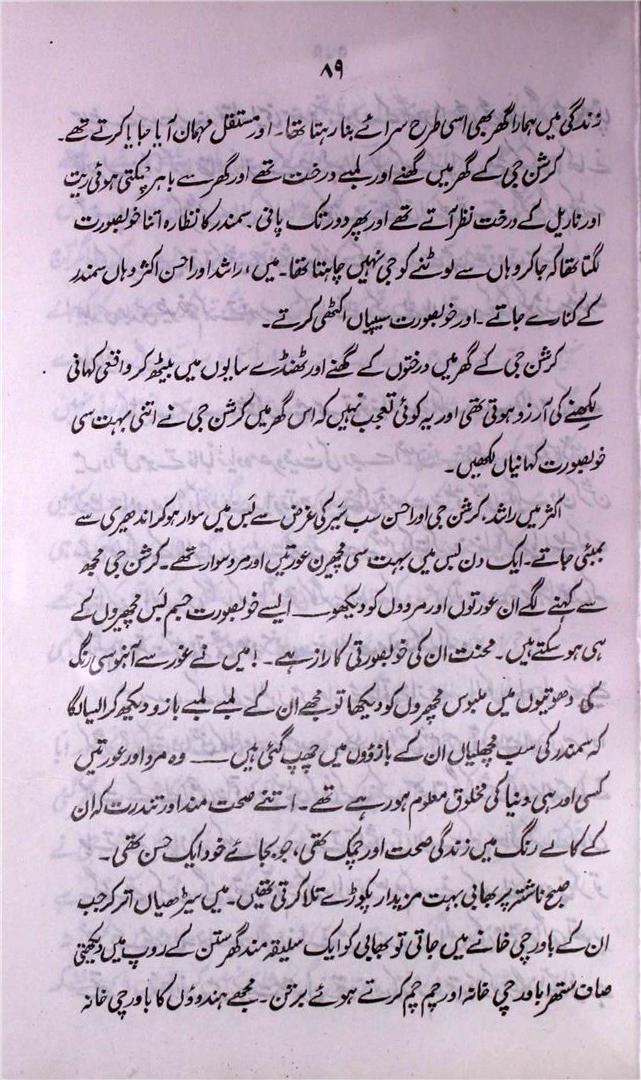 ۸۹
زندگی میں ہمارا گھر بھی اسی طرح سرائے بنا رہتا تھا۔ اور مستقل مہمان آیا جایا کرتے تھے۔
کرشن جی کے گھر میں گھنے اور لمبے درخت تھے اور گھر سے باہر چمکتی ہوئی ریت
اور ناریل کے درخت نظر آتے تھے اور پھر دور تک پانی۔ سمندر کا نظارہ اتنا خوبصورت
لگتا تھا کہ جا کر وہاں سے لوٹنے کو جی نہیں چاہتا تھا۔ میں، راشد اور احسن اکثر وہاں سمندر
کے کنارے جاتے۔ اور خوبصورت سیپیاں اکٹھی کرتے۔
کرشن جی کے گھر میں درختوں کے گھنے اور ٹھنڈے سایوں میں بیٹھ کر واقعی کہانی
لکھنے کی آرزو ہوتی تھی اور یہ کوئی تعجب نہیں کہ اس گھر میں کرشن جی نے اتنی بہت سی
خوبصورت کہانیاں لکھیں۔
اکثر میں راشد، کرشن جی اور احسن سب سَیر کی غرض سے بَس میں سوار ہو کر اندھیری سے
بمبئی جاتے۔ ایک دن بس میں بہت سی مچھیرن عورتیں اور مرد سوار تھے۔ کرشن جی مجھ
سے کہنے لگے ان عورتوں اور مردوں کو دیکھو —— ایسے خوبصورت جسم بس مچھیروں کے
ہی ہو سکتے ہیں۔ محنت ان کی خوبصورتی کا راز ہے۔ ! میں نے غور سے آبنوسی رنگ
کی دھوتیوں میں ملبوس مچھیروں کو دیکھا تو مجھے ان کے لمبے لمبے بازو دیکھ کر ایسا لگا
کہ سمندر کی سب مچھلیاں ان کے بازوؤں میں چھپ گئی ہیں —— وہ مرد اور عورتیں
کسی اور ہی دنیا کی مخلوق معلوم ہو رہے تھے۔ اتنے صحت مند اور تندرست کہ ان
کے کالے رنگ میں زندگی صحت اور چمک تھی، جو بجائے خود ایک حسن تھی۔
صبح ناشتہ پر بھابی بہت مزیدار پکوڑے تلا کرتی تھیں۔ میں سیڑھیاں اتر کر جب
ان کے باورچی خانے میں جاتی تو بھابی کو ایک سلیقہ مند گھرستن کے روپ میں دیکھتی
صاف ستھرا باورچی خانہ اور چم چم کرتے ہوئے برتن۔ مجھے ہندوؤں کا باورچی خانہ